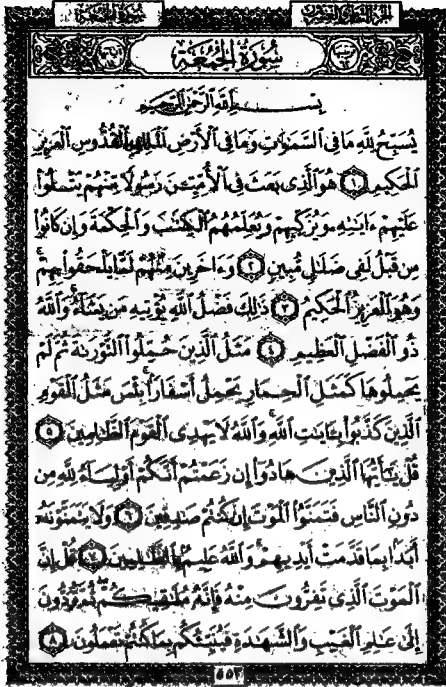 الجزء الثامن والعشرون سورة الجمعة
سُورَةُ الْجُمُعَةِ
بِسْمِ اللَّهِ الرَّحْمَٰنِ الرَّحِيمِ
يُسَبِّحُ لِلَّهِ مَا فِي السَّمَٰوَٰتِ وَمَا فِي الْأَرْضِ الْمَلِكِ الْقُدُّوسِ الْعَزِيزِ
الْحَكِيمِ ١ هُوَ الَّذِي بَعَثَ فِي الْأُمِّيِّينَ رَسُولًا مِنْهُمْ يَتْلُوا
عَلَيْهِمْ ءَايَٰتِهِ وَيُزَكِّيهِمْ وَيُعَلِّمُهُمُ الْكِتَٰبَ وَالْحِكْمَةَ وَإِن كَانُوا
مِن قَبْلُ لَفِي ضَلَٰلٍ مُبِينٍ ٢ وَءَاخَرِينَ مِنْهُمْ لَمَّا يَلْحَقُوا بِهِمْ
وَهُوَ الْعَزِيزُ الْحَكِيمُ ٣ ذَٰلِكَ فَضْلُ اللَّهِ يُؤْتِيهِ مَن يَشَاءُ وَاللَّهُ
ذُو الْفَضْلِ الْعَظِيمِ ٤ مَثَلُ الَّذِينَ حُمِّلُوا التَّوْرَىٰةَ ثُمَّ لَمْ
يَحْمِلُوهَا كَمَثَلِ الْحِمَارِ يَحْمِلُ أَسْفَارًا بِئْسَ مَثَلُ الْقَوْمِ
الَّذِينَ كَذَّبُوا بِـَٔايَٰتِ اللَّهِ وَاللَّهُ لَا يَهْدِي الْقَوْمَ الظَّٰلِمِينَ ٥
قُلْ يَٰأَيُّهَا الَّذِينَ هَادُوا إِن زَعَمْتُمْ أَنَّكُمْ أَوْلِيَاءُ لِلَّهِ مِن
دُونِ النَّاسِ فَتَمَنَّوُا الْمَوْتَ إِن كُنتُمْ صَٰدِقِينَ ٦ وَلَا يَتَمَنَّوْنَهُ
أَبَدًا بِمَا قَدَّمَتْ أَيْدِيهِمْ وَاللَّهُ عَلِيمٌ بِالظَّٰلِمِينَ ٧ قُلْ إِنَّ
الْمَوْتَ الَّذِي تَفِرُّونَ مِنْهُ فَإِنَّهُ مُلَٰقِيكُمْ ثُمَّ تُرَدُّونَ
إِلَىٰ عَٰلِمِ الْغَيْبِ وَالشَّهَٰدَةِ فَيُنَبِّئُكُم بِمَا كُنتُمْ تَعْمَلُونَ ٨
٥٥٣